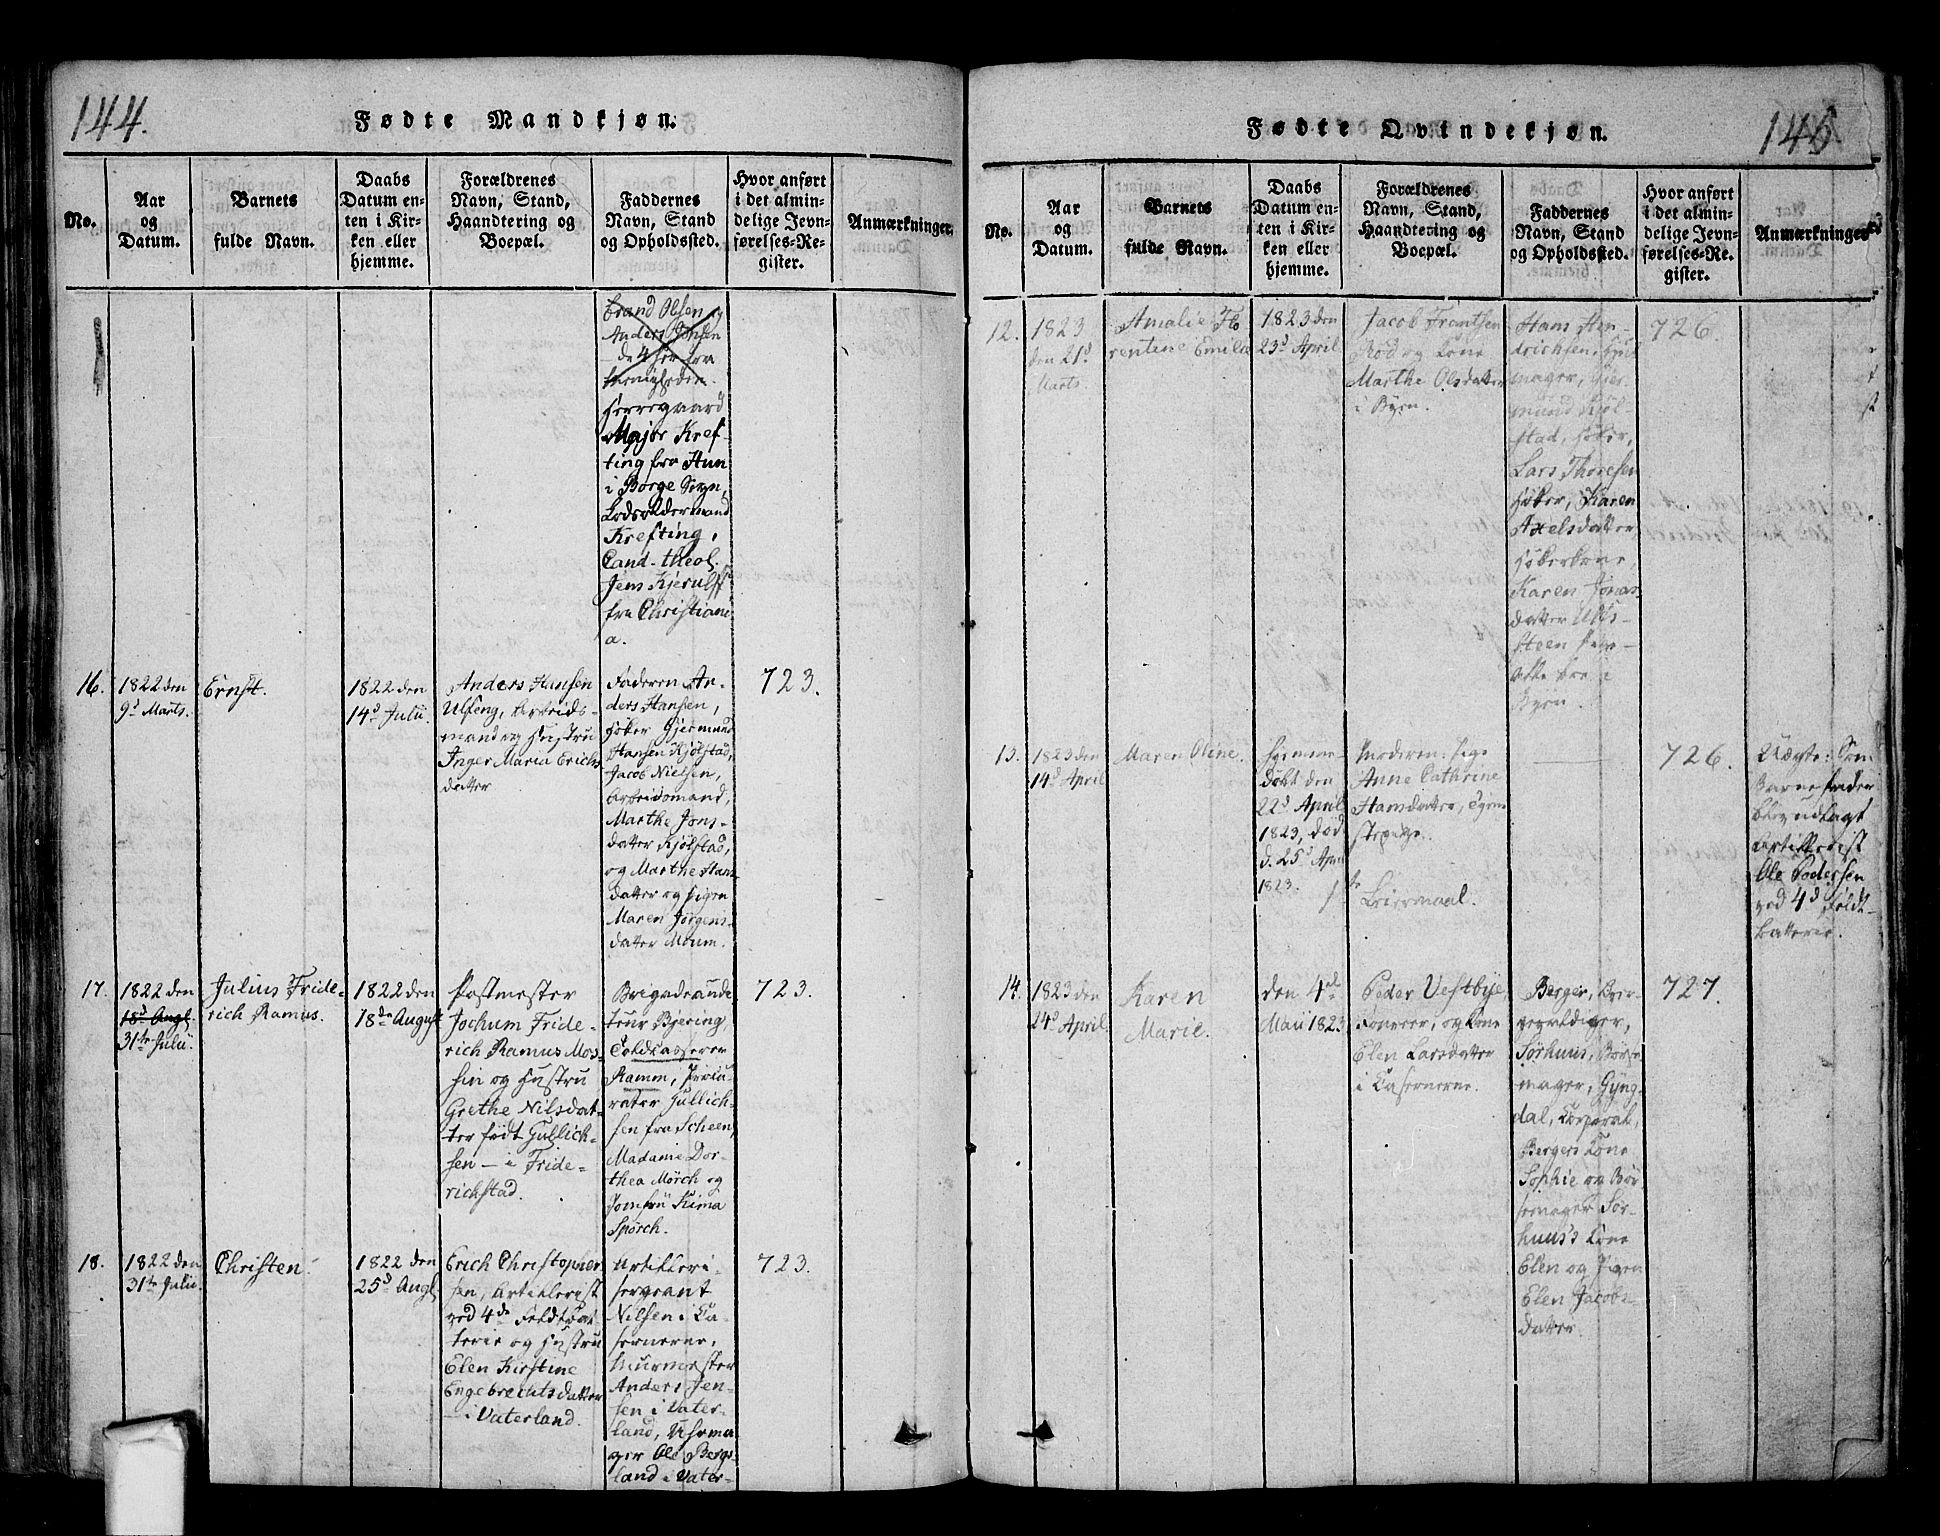 144.
Fødte Mandkjøn.
No.
Aar
og
Datum.
Barnets
fulde Navn.
Daabs
Datum en-
ten i Kir-
ken eller
hjemme.
Forældrenes
Navn, Stand,
Haandtering og
Boepæl.
Faddernes
Navn, Stand
og Opholdssted.
Hvor anført
i det almin-
delige Jevn-
førelses-Re-
gister.
Anmærkninger.
Anders
Herregaard
Major Kref-
ting fra Hun
i Borge Sogn,
Lodsoldermand
Krefting,
Cand. theol.
Jens Kjerulff
fra Christiani-
a.
16.
1822 den
9d Marts.
Ernst.
1822 den
14d Julii.
Anders Hansen
Ulfeng, Arbeids-
mand og Hustru
Inger Maria Erichs
datter
Faderen An-
ders Hansen,
Høker Gjermund
Hansen Kjølstad,
Jacob Nielsen,
Arbeidsmand,
Marthe Jons-
datter Kjølstad,
og Marthe Hans-
datter og Pigen
Maren Jørgens-
datter Moum.
723.
17.
1822 den
18d Augl.
31te Julii.
Julius Fride-
rich Ramus.
1822 den
18de August
Postmester
Jochum Fride-
rich Ramus Mos-
sin og Hustru
Grethe Nilsdat-
ter født Gullich-
sen – i Fride-
richstad.
Brigadeaudi-
teur Bjering,
Toldkasserer
Ramm, Procu-
rator Gullich-
sen fra Scheen,
Madame Dor-
thea Mørch og
Jomfru
Spørch.
723.
18.
1822 den
31te Julii.
Christen.
1822 den
25d Augl.
Erich Christopher-
sen, Artillerist
ved 4de Feldtbat-
terie og Hustru
Elen Kirstine
Engebrechtsdatter
– i Vaterland.
Artilleri-
sergeant
Nilsen i Ca-
sernerne,
Murmester
Anders Jen-
sen i Vater-
land, Uhrma-
ger Ole Bergs-
land i Vater-
723.
Fødte Qvindekjøn.
145.
No.
Aar
og
Datum.
Barnets
fulde Navn.
Daabs
Datum en-
ten i Kir-
ken eller
hjemme.
Forældrenes
Navn, Stand,
Haandtering og
Boepæl.
Faddernes
Navn, Stand
og Opholdssted.
Hvor anført
i det almin-
delige Jevn-
førelses-Re-
gister.
Anmærkninger
12.
1823
den 21d
Marts.
Amalie Flo-
rentine Emilie
1823 den
23d April
Jacob Frantsen
Rød og Kone
Marthe Olsdatter
i Byen.
Hans Hen-
drichsen, Hjul-
mager, Gjer-
mund Kjøl-
stad, Høker,
Lars Thoresen
Høker, Karen
Axelsdatter,
Høkerkone,
Karen Jonas-
datter
i
Byen.
726
13.
1823 den
14d April
Maren Oline.
Hjemme-
døbt den
22d April
1823, død
d. 25d April
1823.
Moderen: Pige
Anne Cathrine
Hansdatter, Tjene-
stepige.
Leiermaal.
726.
Uægte: Som
Barnefader
blev udlagt
Artillerist
Ole Pedersen
ved 4d Feldt-
batterie.
14.
1823 den
24d April.
Karen
Marie.
den 4de
Maii 1823
Peder Vestbye,
og Kone
Elen Larsdatter
i Casernerne.
Berger,
Sørhuus, Børse-
mager, Gyng-
dal, Corporal,
Bergers Kone
Sophie og Bør-
semager Sør-
huus's Kone
Elen og Pigen
Elen Jacobs-
datter.
727.